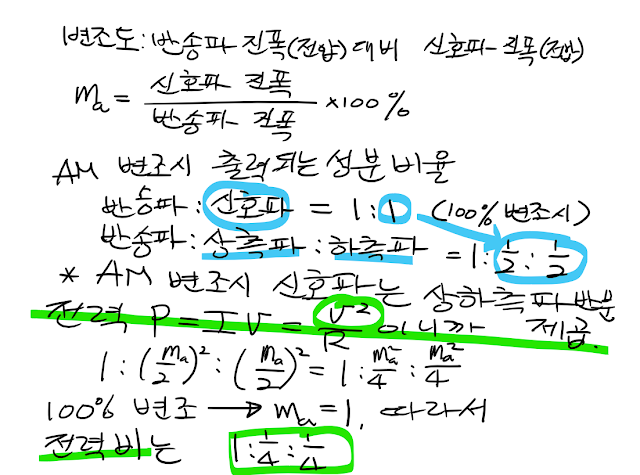 변조도: 반송파 진폭(전압) 대비 신호파 진폭(전압)
ma = 신호파 진폭 / 반송파 진폭 ×100%
AM 변조시 출력되는 성분 비율
반송파 : 신호파 = 1 : 1 (100% 변조시)
반송파 : 상측파 : 하측파 = 1 : 1/2 : 1/2
* AM 변조시 신호파는 상하측파 반분
전력 P = IV = V²/R 이니까 제곱.
1 : (ma/2)² : (ma/2)² = 1 : ma²/4 : ma²/4
100% 변조 → ma = 1, 따라서
전력비는 1 : 1/4 : 1/4